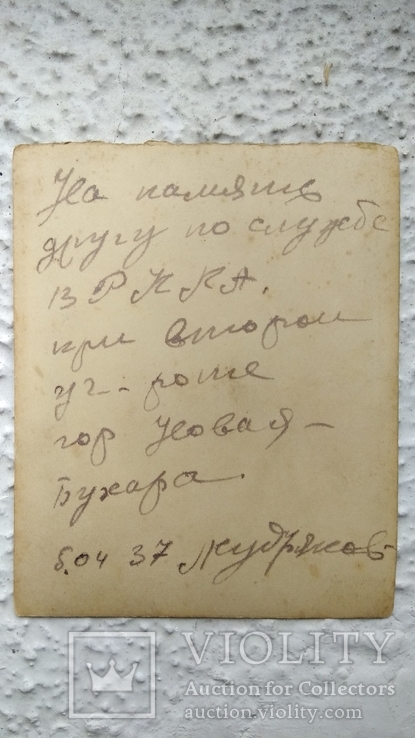 На память
другу по службе
в РККА.
при втором
уч - роте
гор Новая -
Бухара.
5.04 37 Кудряков
VIOLITY
Auction for Collectors
auction.violity.com